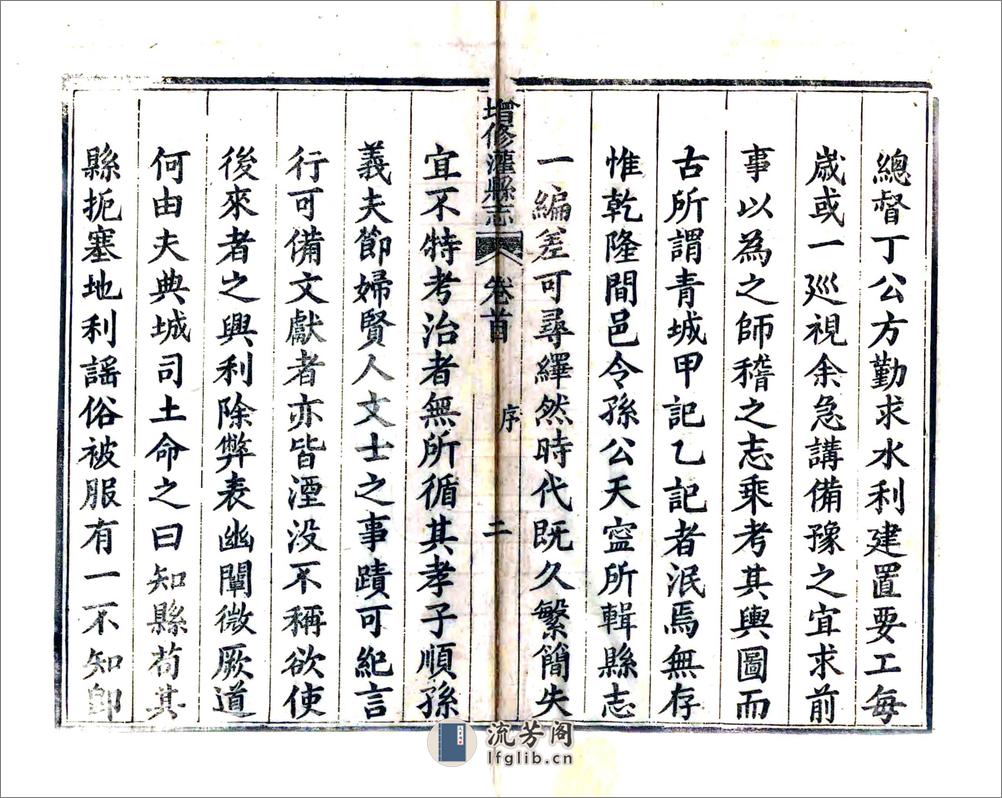 總督丁公方勤求水利建置要工每
歲或一廵視余急講備豫之宜求前
事以為之師稽之志乘考其輿圖而
古所謂青城甲記乙記者泯焉無存
惟乾隆間邑令孫公天寍所輯縣志
一編差可尋繹然時代既久繁簡失
增修灌縣志 卷首 序 二
宜不特考治者無所循其孝子順孫
義夫節婦賢人文士之事蹟可紀言
行可備文獻者亦皆湮没不稱欲使
後來者之興利除弊表幽闡微厥道
何由夫典城司土命之曰知縣苟其
縣扼塞地利謡俗被服有一不知卽
流芳阁
lfglib.cn